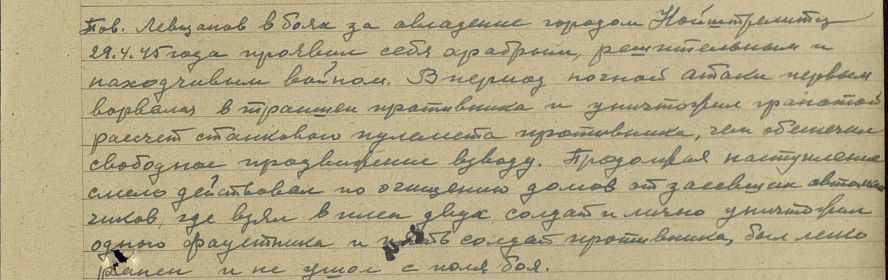 Тов. Левщанов в боях за овладение городом Нойштрелитц
29.4.45 года проявил себя храбрым, решительным и
находчивым войном. В период ночной атаки первым
ворвался в траншеи противника и уничтожил гранатой
расчет станкового пулемета противника, чем обеспечил
свободное продвижение взводу. Продолжая наступление
смело действовал по очищению домов от засевших автомат
чиков, где взял в плен двух солдат и лично уничтожил
одного фаустника и пять солдат противника, был легко
ранен и не ушол с поля боя.